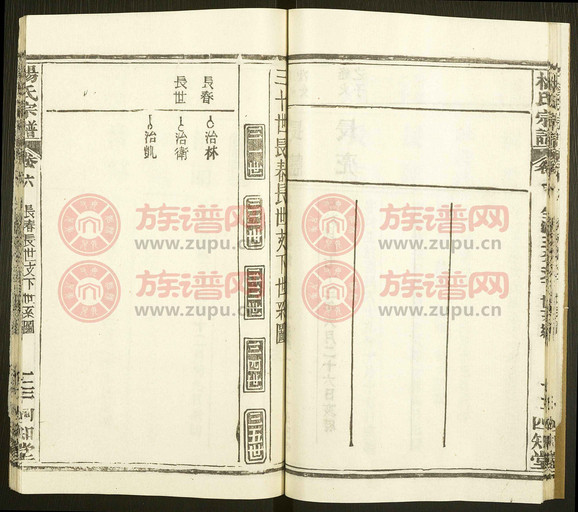 楊氏宗譜
卷六
四知堂
三十世長春長世支下世系圖
三一世
三二世
三三世
三四世
三五世
長春
治林
長世
治衛
治凱
楊氏宗譜
卷六
長春長世支下世系圖
四知堂
族谱网
www.zupu.cn
族谱网
www.zupu.cn
族谱网
www.zupu.cn
族谱网
www.zupu.cn